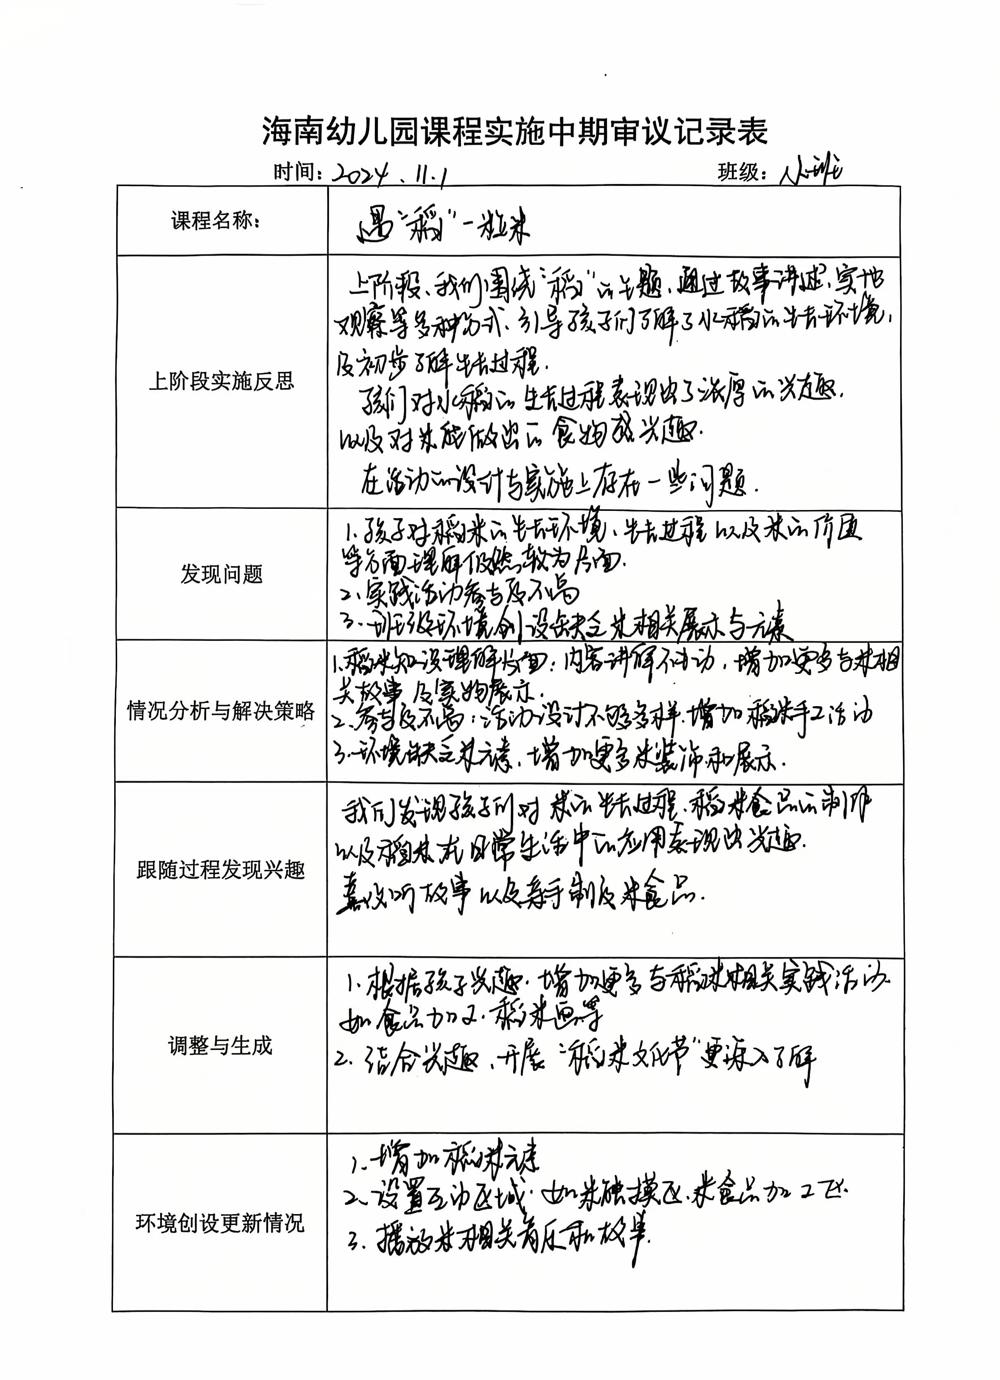 海南幼儿园课程实施中期审议记录表
时间：2024.11.1 班级：小班
课程名称：
遇“稻”一粒米
上阶段实施反思
上阶段、我们围绕“稻”的主题，通过故事讲述、实地
观察等多种方式、引导孩子们了解了水稻的生长环境，
及初步了解生长过程.
孩们对水稻的生长过程表现出了浓厚的兴趣.
以及对米能做出的食物感兴趣.
在活动的设计与实施上存在一些问题.
发现问题
1.孩子对稻米的生长环境、生长过程以及米的价值
等方面理解仍然较为片面.
2.实践活动参与度不高
3.班级环境创设缺乏米相关展示与元素
情况分析与解决策略
1.稻米知识理解片面：内容讲解不生动，增加更多与米相
关故事及实物展示.
2.参与度不高：活动设计不够多样.增加稻米手工活动
3.环境缺乏米元素，增加更多米装饰和展示.
跟随过程发现兴趣
我们发现孩子们对米的生长过程、稻米食品的制作
以及稻米在日常生活中的应用表现出兴趣.
喜欢听故事以及亲手制作米食品.
调整与生成
1.根据孩子兴趣.增加更多与稻米相关实践活动
如食品加工、稻米画等
2.结合兴趣、开展“稻米文化节”更深入了解
环境创设更新情况
1.增加稻米元素
2.设置互动区域.如米触摸区.米食品加工区.
3.播放米相关音乐和故事.